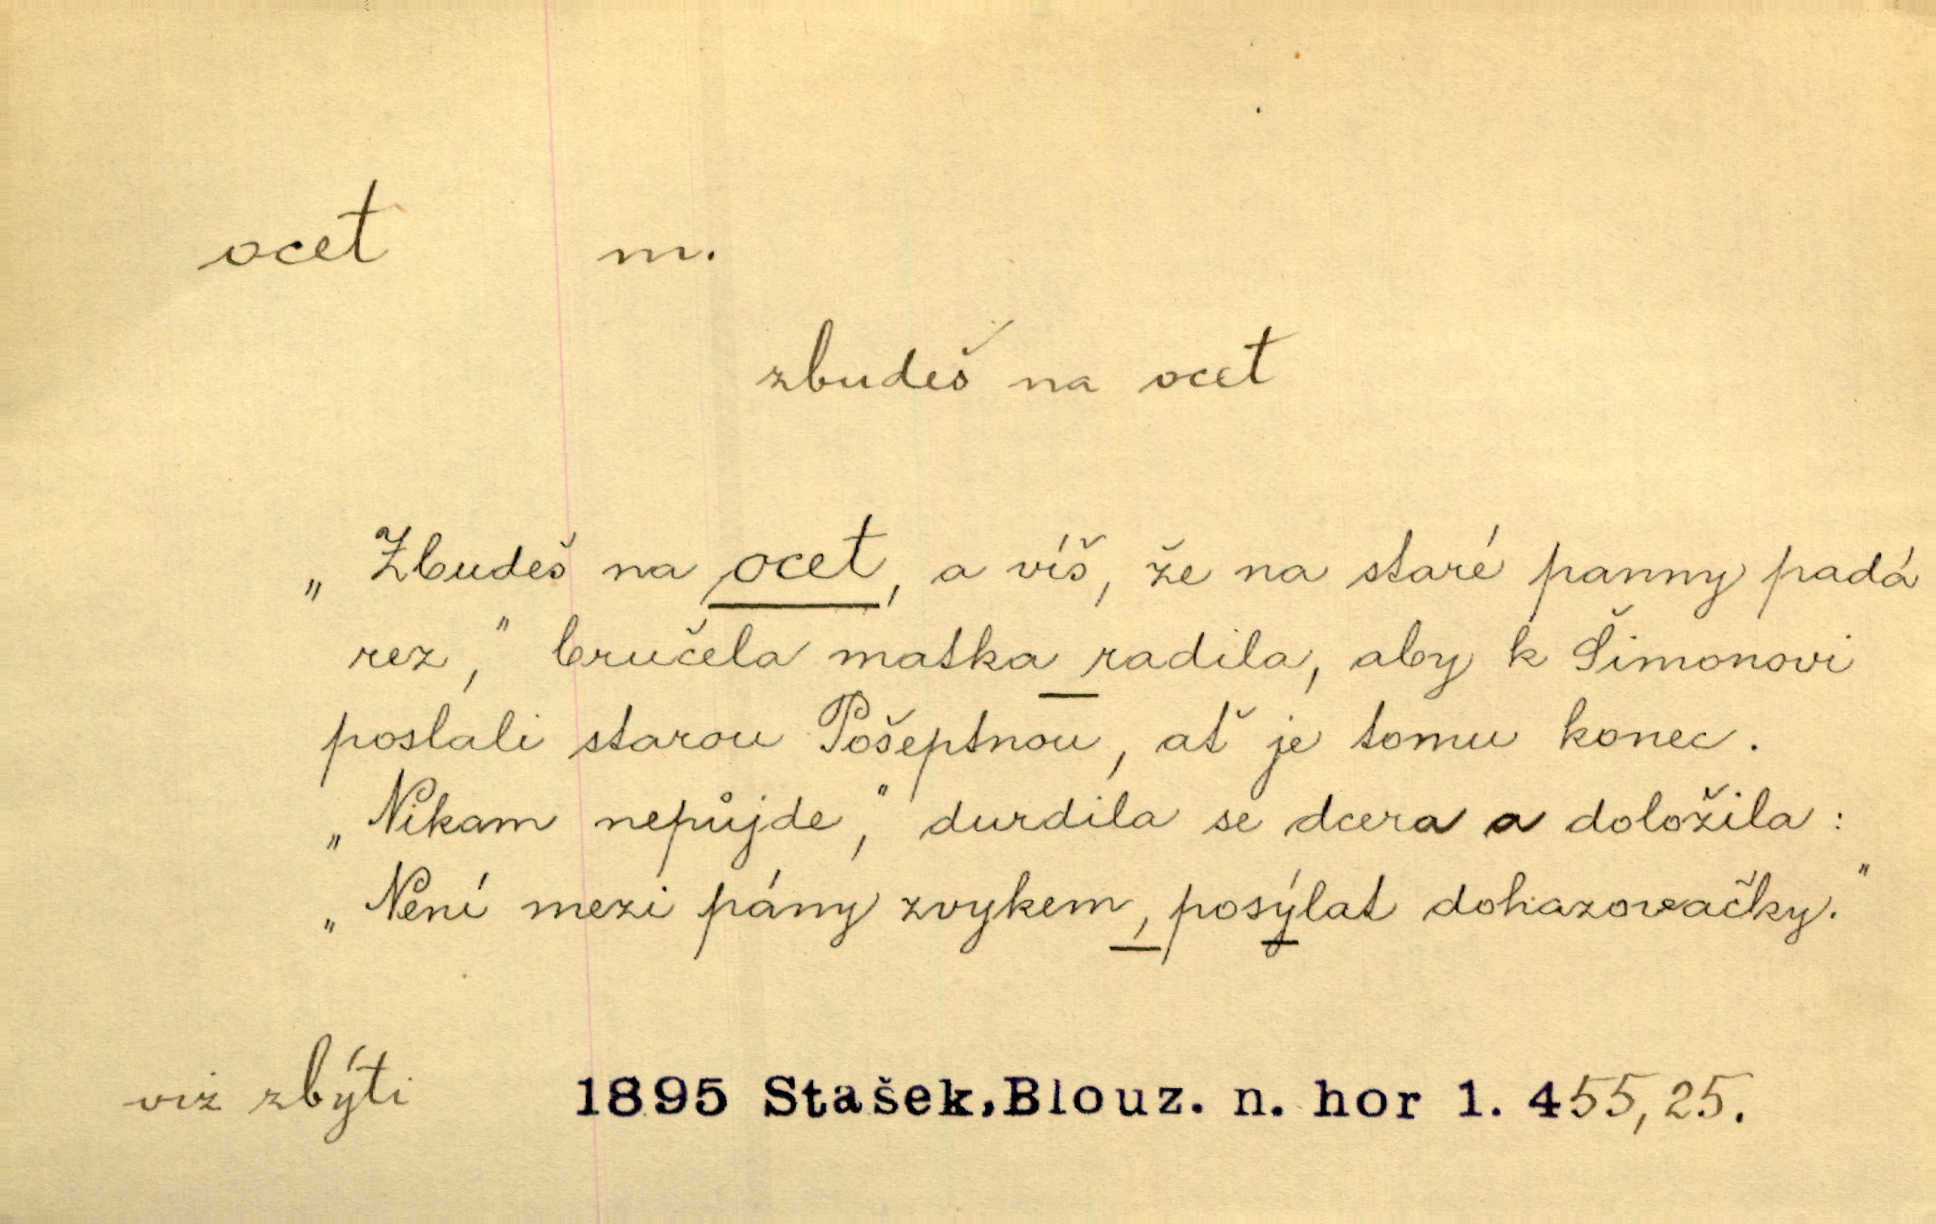 ocet m.
zbudeš na ocet
„Zbudeš na ocet, a víš, že na staré panny padá
rez,“ bručela matka radila, aby k Šimonovi
poslali starou Pošeptnou, ať je tomu konec.
„Nikam nepůjde,“ durdila se dcera a doložila:
„Není mezi pány zvykem, posýlat dohazovačky.“
viz zbýti 1895 Stašek,Blouz. n. hor 1. 455,25.